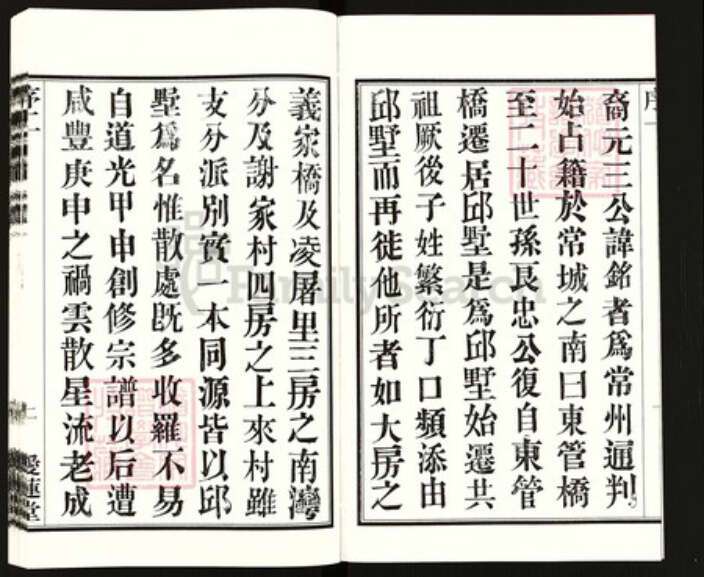 裔元三公諱銘者爲常州通判
始占籍於常城之南曰東管橋
至二十世孫良忠公復自東管
橋遷居邱墅是爲邱墅始遷共
祖厥後子姓繁衍丁口類添由
邱墅而再徙他所者如大房之
義家橋及凌屠里三房之南灣
分及謝家村四房之上來村雖
支分派別實一本同源皆以邱
墅爲名惟散處既多收羅不易
自道光甲申創修宗譜以后遭
咸豐庚申之禍雲散星流老成
序二
二
愛蓮堂
FamilySearch